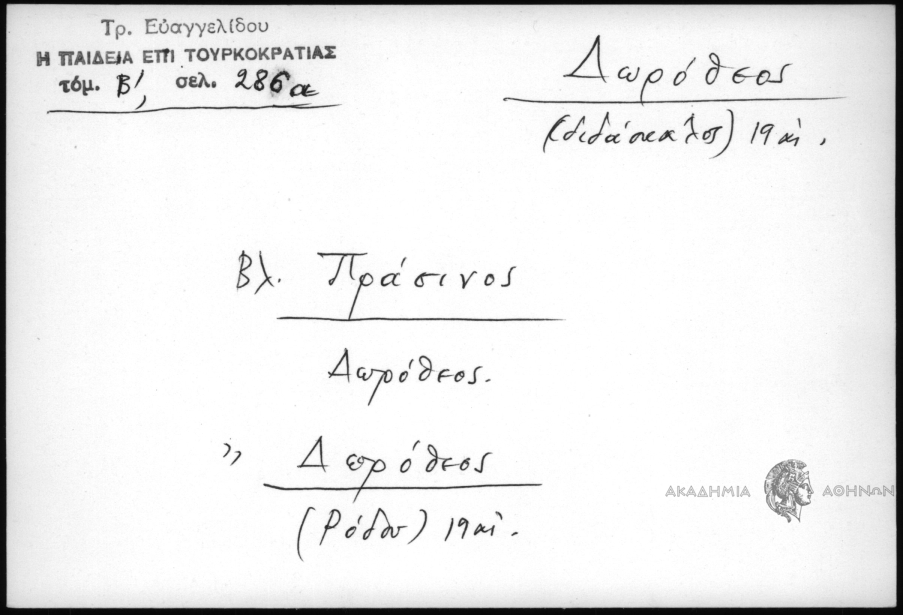 Τρ. Εὐαγγελίδου
Η ΠΑΙΔΕΙΑ ΕΠΙ ΤΟΥΡΚΟΚΡΑΤΙΑΣ
τόμ. Β', σελ. 286 α
Δωρόθεος
(διδάσκαλος) 19 αἰ.
Βλ. Πράσινος
Δωρόθεος.
» Δωρόθεος
(Ρόδου) 19 αἰ.
ΑΚΑΔΗΜΙΑ ΑΘΗΝΩΝ